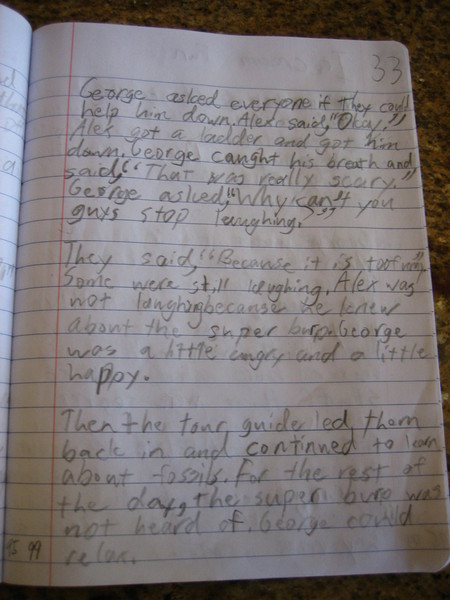 33
George asked everyone if they could
help him down. Alex said, "Okay."
Alex got a ladder and got him
down. George caught his breath and
said, "That was really scary."
George asked, "Why can't you
guys stop laughing?"
They said, "Because it is too funny."
Some were still laughing. Alex was
not laughing because he knew
about the super burp. George
was a little angry and a little
happy.
Then the tour guide led them
back in and continued to learn
about fossils. For the rest of
the day, the super burp was
not heard of. George could
relax.
99